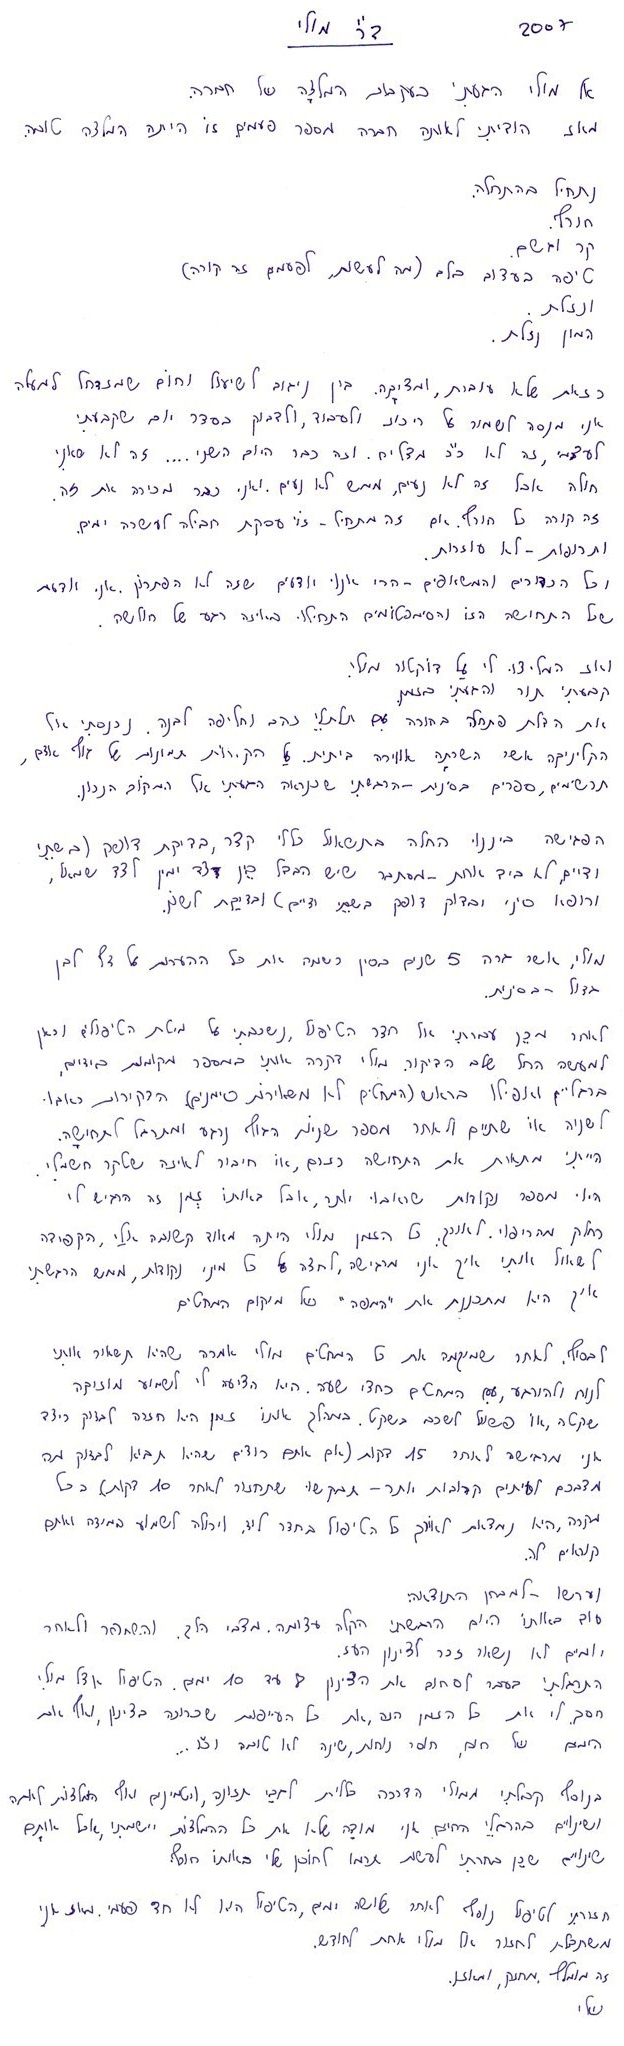 2007
ד"ר מולי
אל מולי הגעתי בעקבות המלצה של חברה.
מאז הודיתי לאותה חברה מספר פעמים זו היתה המלצה טובה.
נתחיל בהתחלה.
חורף.
קר וגשם.
טיפה בעצוב בלב (מה לעשות, לפעמים זה קורה)
ונזלת.
המון נזלת.
כזאת שלא עוברת, ומציקה. בין ניגוב לשיעול וחום שמזדחל למעלה
אני מנסה לשמור על ריכוז ולעבוד, ולדבוק בסדר יום שקבעתי
לעצמי, זה לא כ"כ מצליח. וזה כבר היום השני.... זה לא שאני
חולה אבל זה לא נעים, ממש לא נעים. ואני כבר מכירה את זה.
זה קורה כל חורף. אם זה מתחיל - זו עסקת חבילה לעשרה ימים.
ותרופות - לא עוזרות.
וכל הכדורים והמשאפים - הרי אנו יודעים שזה לא הפתרון. אני יודעת
שכל התחושה הזו והסימפטומים התחילו באיזה רגע של חולשה.
ואז המליצו לי על דוקטור מולי.
קבעתי תור והגעתי בזמן.
את הדלת פתחה בחורה עם תלתלי זהב וחליפה לבנה. נכנסתי אל
הקליניקה אשר השרתה אווירה ביתית. על הקירות תמונות של גוף אדם,
תרשימים, ספרים בסינית - הרגשתי שכנראה הגעתי אל המקום הנכון.
הפגישה ביננו החלה בתשאול כללי קצר, בדיקת דופק (בשתי
ידיים, לא ביד אחת - מסתבר שיש הבדל בין צד ימין לצד שמאל,
ורופא סיני יבדוק דופק בשתי ידיים) ובדיקת לשון.
מולי, אשר גרה 5 שנים בסין רשמה את כל ההערות על דף לבן
גדול - בסינית.
לאחר מכן עברתי אל חדר הטיפול, נשכבתי על מיטת הטיפולים וכאן
למעשה החל שלב הדיקור. מולי דקרה אותי במספר מקומות בידיים,
ברגליים ואפילו בראש (המחטים לא משאירות סימנים) הדקירות כאבו
לשניה או שתיים ולאחר מספר שניות הגוף נרגע ומתרגל לתחושה.
הייתי מתארת את התחושה כזרם, או חיבור לאיזה שטקר חשמלי.
היו מספר נקודות שכאבו יותר, אבל באותו זמן זה הרגיש לי
כחלק מהריפוי. לאורך כל הזמן מולי היתה מאוד קשובה אלי, הקפידה
לשאול אותי איך אני מרגישה, לחצה על כל מיני נקודות, ממש הרגשתי
איך היא מתכננת את "המפה" של מיקום המחטים
לבסוף, לאחר שמיקמה את כל המחטים מולי אמרה שהיא תשאיר אותי
לנוח ולהירגע, עם המחטים כחצי שעה. היא הציעה לי לשמוע מוזיקה
שקטה, או פשוט לשכב בשקט. במהלך אותו זמן היא חזרה לבדוק כיצד
אני מרגישה לאחר 15 דקות (אם אתם רוצים שהיא תבוא לבדוק מה
מצבכם לעיתים קרובות יותר - תבקשו שתחזור לאחר 10 דקות) בכל
מקרה, היא נמצאת לאורך כל הטיפול בחדר ליד, ויכולה לשמוע במידה ואתם
קוראים לה.
ועכשיו - למבחן התוצאה:
עוד באותו היום הרגשתי הקלה עצומה. מצבי הלך והשתפר ולאחר
יומיים לא נשאר זכר לצינון העז.
התרגלתי בעבר לסחוב את הצינון 8 עד 10 ימים. הטיפול אצל מולי
חסך לי את כל הזמן הזה, את כל העייפות שכרוכה בצינון, ואף את
הימים של חום, חוסר נוחות, שינה לא טובה וכו'...
בנוסף קיבלתי ממולי הדרכה כללית לגבי תזונה, ויטמינים ואף המלצות לתה
ושינויים בהרגלי החיים. אני מודה שלא את כל ההמלצות יישמתי, אבל אותם
שינויים שכן בחרתי לעשות גרמו לחוסן שלי באותו חורף
חזרתי לטיפול נוסף לאחר שלושה ימים, הטיפול הזה לא חד פעמי. מאז אני
משתדלת לחזור אל מולי אחת לחודש.
זה מומלץ. מחזק, ומאזן.
שלי